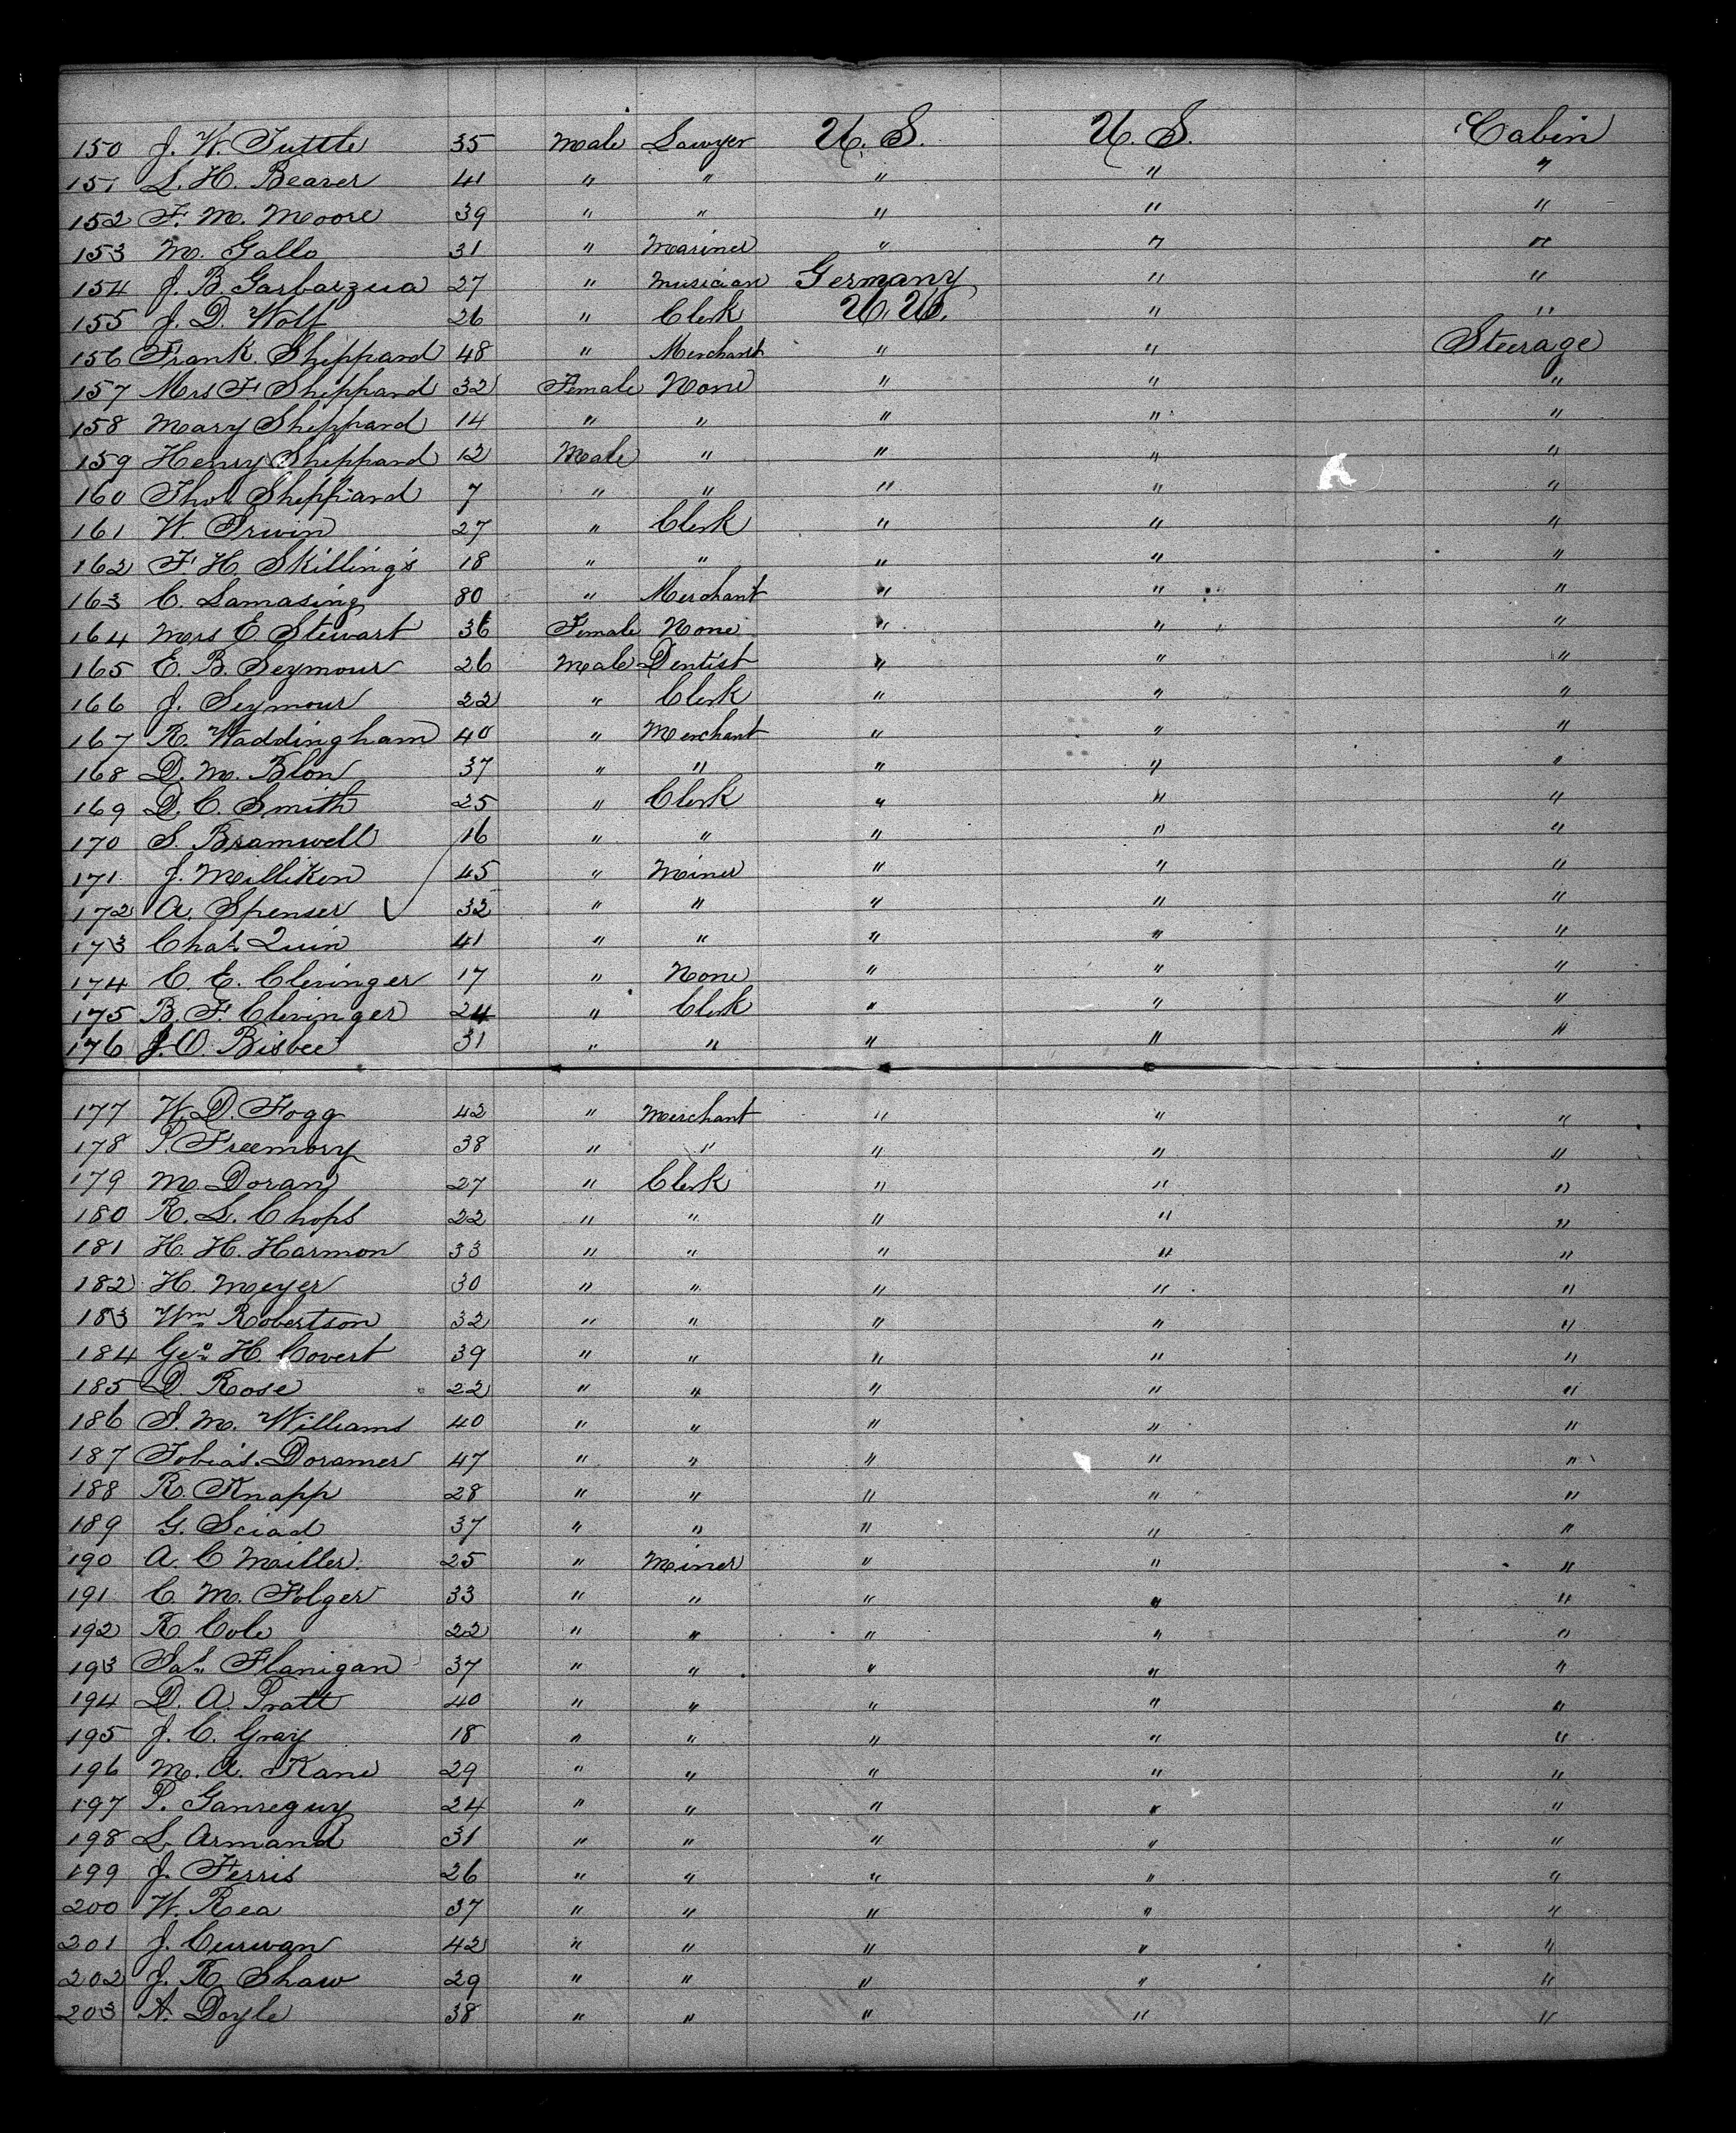 150 J. W. Tuttle 35 Male Lawyer U. S. U. S. Cabin
151 L. H. Beaver 41 " " " " "
152 F. M. Moore 39 " " " " "
153 M. Gallo 31 " Mariner " " "
154 J. B. Garbaizua 27 " Musician Germany " "
155 J. D. Wolf 26 " Clerk " "
156 Frank Sheppard 48 " Merchant " " Steerage
157 Mrs F Sheppard 32 Female None " " "
158 Mary Sheppard 14 " " " " "
159 Henry Sheppard 12 Male " " " "
160 Thos Sheppard 7 " " " " "
161 W. Irwin 27 " Clerk " " "
162 F. H Skillings 18 " " " " "
163 C. Lamasing 80 " Merchant " " "
164 Mrs E Stewart 36 Female None " " "
165 E. B. Seymour 26 Male Dentist " " "
166 J. Seymour 22 " Clerk " " "
167 R. Waddingham 40 " Merchant " " "
168 D. M. Blon 37 " " " " "
169 D. C. Smith 25 " Clerk " " "
170 S. Bramwell 16 " " " " "
171 J. Milliken 45 " Miner " " "
172 A. Spenser 32 " " " " "
173 Chas. Quin 41 " " " " "
174 C. E. Clevinger 17 " None " " "
175 B. F. Clevinger 24 " Clerk " " "
176 J. O. Bisbee 31 " " " " "
177 W. D. Fogg 42 " Merchant " " "
178 P. Freemory 38 " " " " "
179 M Doran 27 " Clerk " " "
180 R. L. Chops 22 " " " " "
181 H. H. Harmon 33 " " " " "
182 H. Meyer 30 " " " " "
183 Wm Robertson 32 " " " " "
184 Geo H. Covert 39 " " " " "
185 D. Rose 22 " " " " "
186 S. M. Williams 40 " " " " "
187 Tobias. Doramer 47 " " " " "
188 R. Knapp 28 " " " " "
189 G. Sciad 37 " " " " "
190 A. C Mailler. 25 " Miner " " "
191 C. M. Folger 33 " " " " "
192 R. Cole 22 " " " " "
193 Jas. Flanigan 37 " " " " "
194 D. A. Pratt 40 " " " " "
195 J. C. Gray 18 " " " " "
196 M. A. Kane 29 " " " " "
197 P. Ganreguy 24 " " " " "
198 L. Armand 31 " " " " "
199 J. Ferris 26 " " " " "
200 W. Rea 37 " " " " "
201 J. Curwan 42 " " " " "
202 J. R. Shaw 29 " " " " "
203 A. Doyle 38 " " " " "